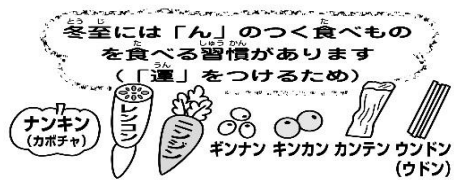 冬至には「ん」のつく食べもの
を食べる習慣があります
(「運」をつけるため)
ナンキン
(カボチャ)
レンコン
ニンジン
ギンナン
キンカン
カンテン
ウンドン
(ウドン)
とう じ
た
た
しゅう かん
うん